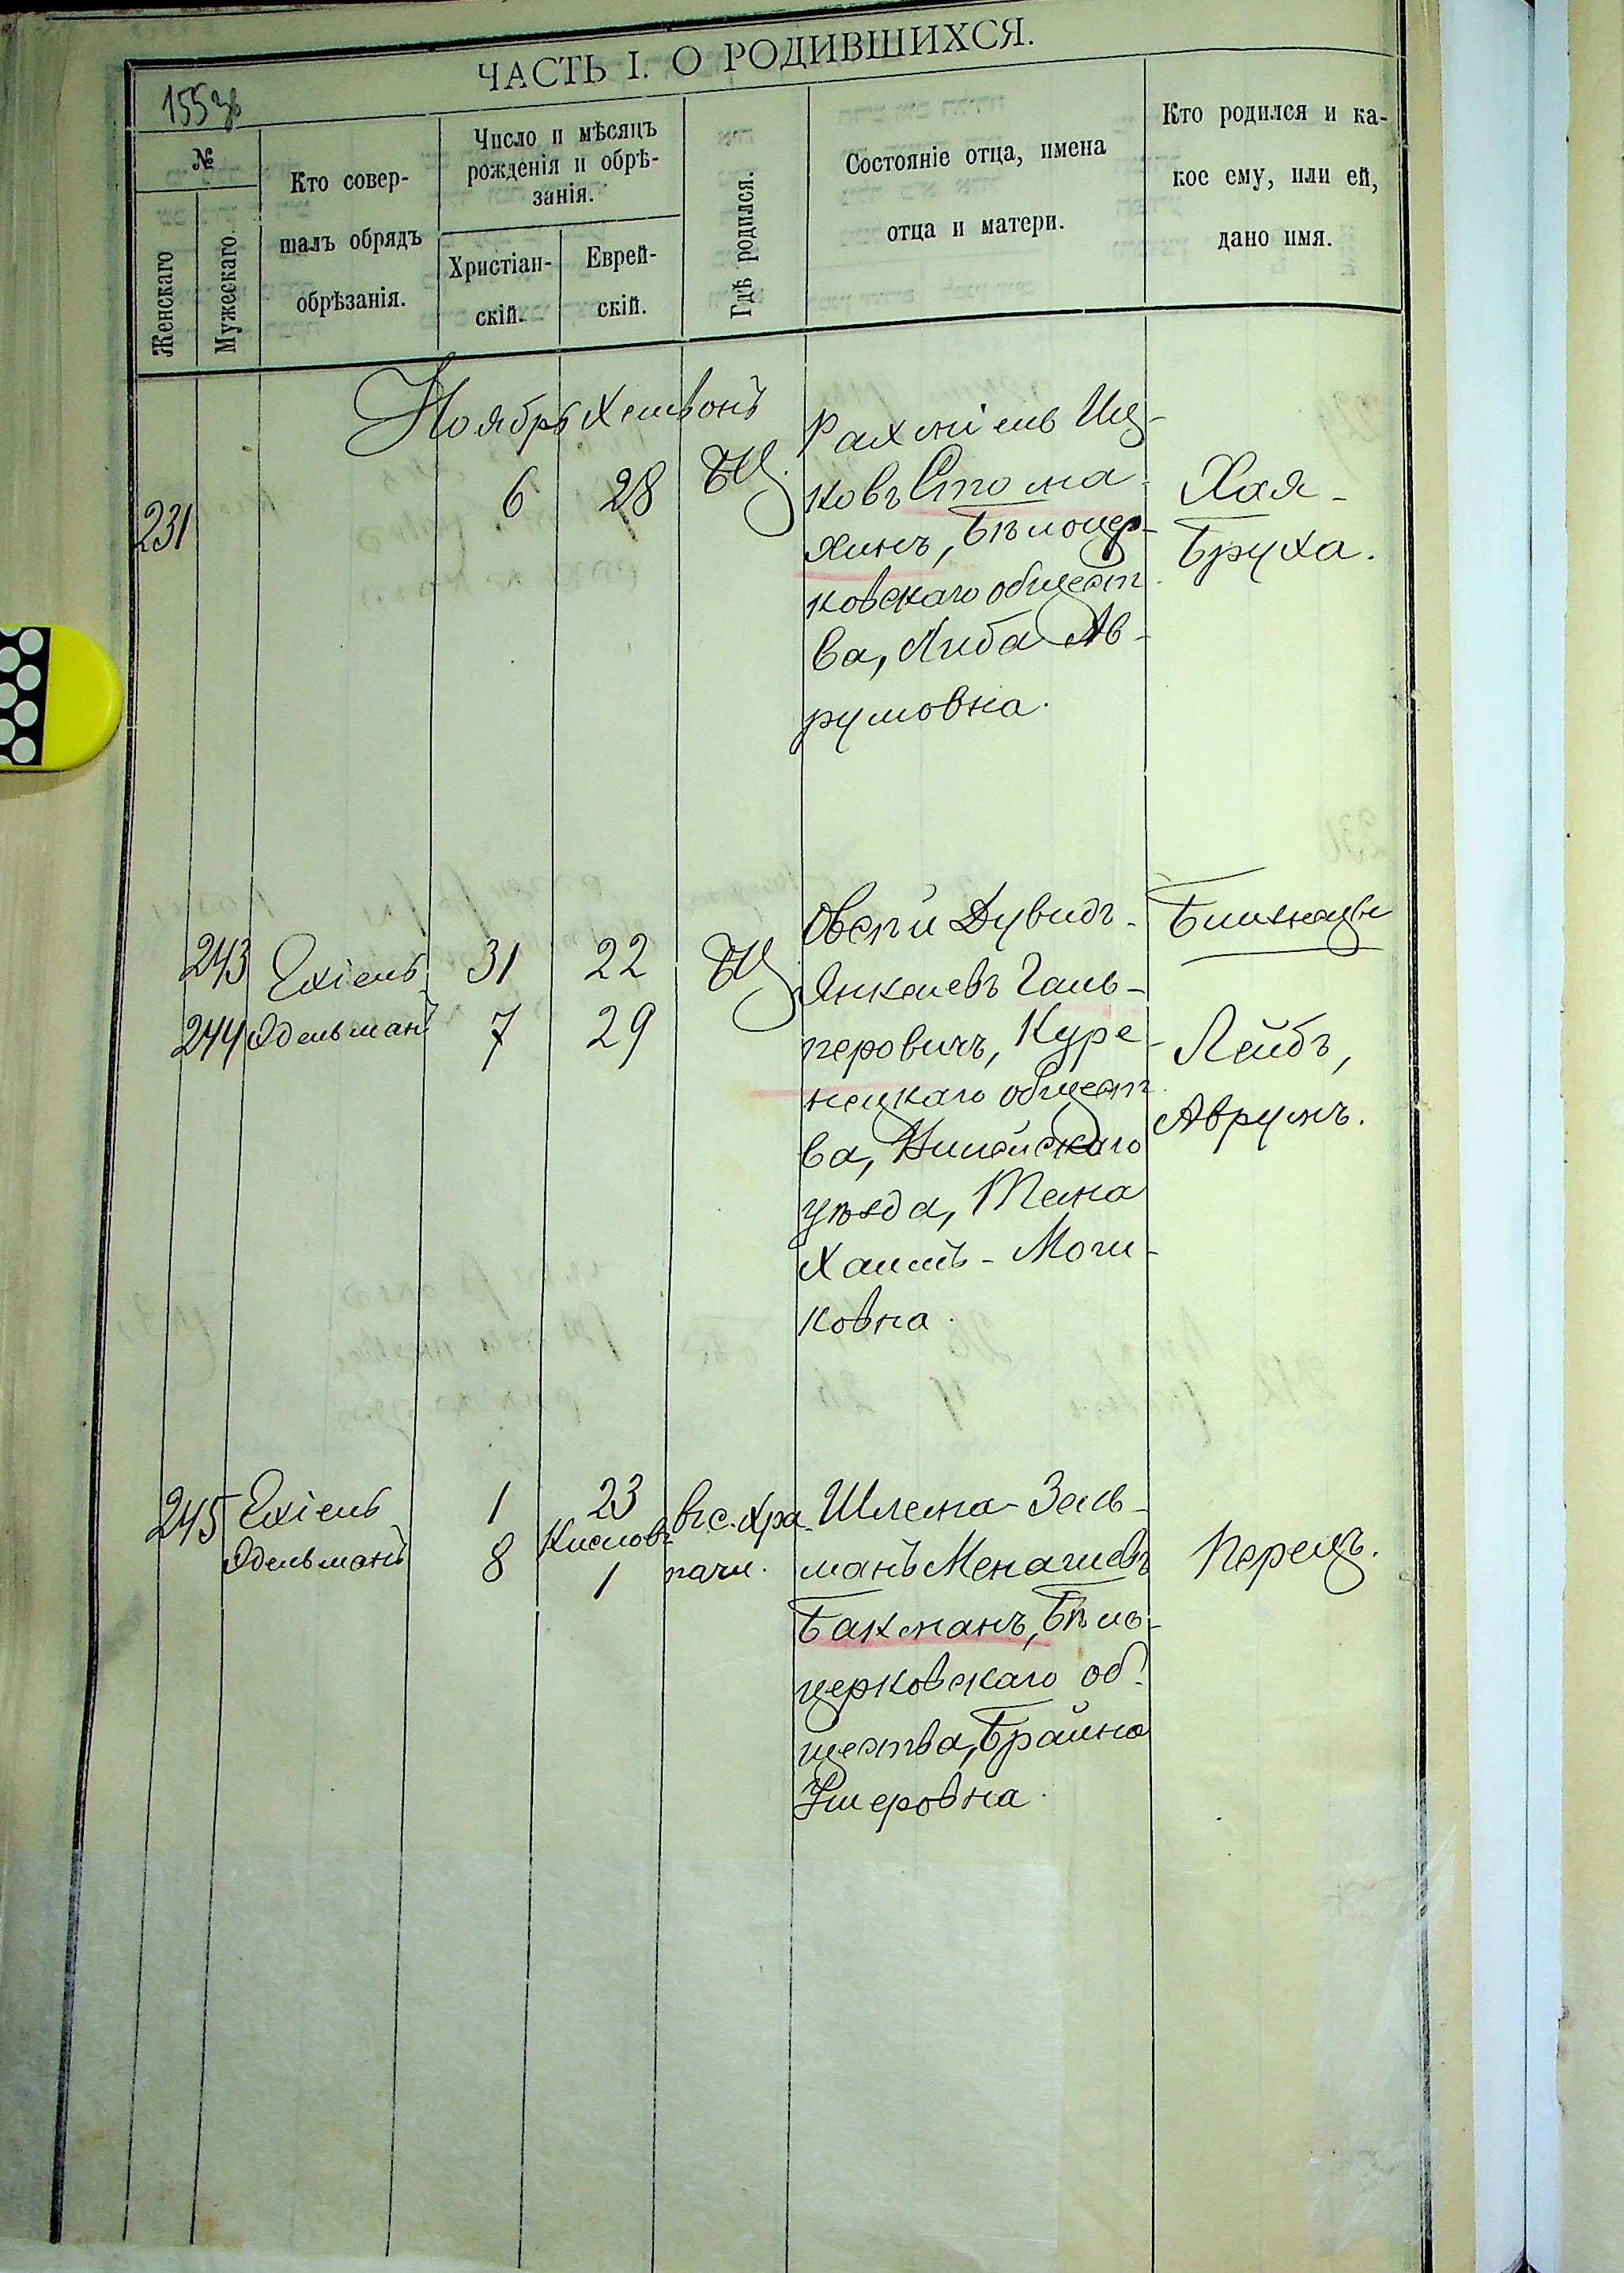 ЧАСТЬ I. О РОДИВШИХСЯ.
155
№
Женскаго
Мужескаго.
Кто совер-
шалъ обрядъ
обрѣзанія.
Число и мѣсяцъ
рожденія и обрѣ-
занія.
Христіан-
скій.
Еврей-
скій.
Гдѣ родился.
Состояніе отца, имена
отца и матери.
Кто родился и ка-
кое ему, или ей,
дано имя.
Ноябрь Хешвонъ
231
6
28
БЦ.
Рахміель Иц-
ковъ Стома-
хинъ, Бѣлоцер-
ковскаго общест-
ва, Либа Ав-
румовна.
Хая-
Бруха.
243 Ехіель 31 22 БЦ.
244 Эдельманъ 7 29
Овсѣй Дувидъ-
Янкелевъ Галь-
перовичъ, Куре-
нецкаго общест-
ва, Вилейскаго
уѣзда,
Хаимъ-
ковна.
Близнецы
Лейбъ,
Аврумъ.
245 Ехіель 1 23 въ с. Хра-
Эдельманъ 8 Кислевъ 1 пачи.
Шлема-Заль-
манъ Менашевъ
Бакманъ, Бѣло-
церковскаго об-
щества, Брайна
Ушеровна.
Перецъ.